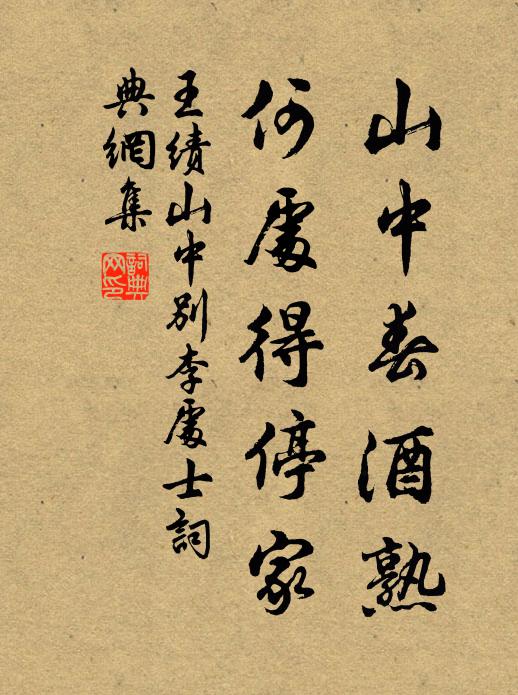 山中春酒熟
何處得停家
王績山中別李處士詞
典網集
詞典
网印